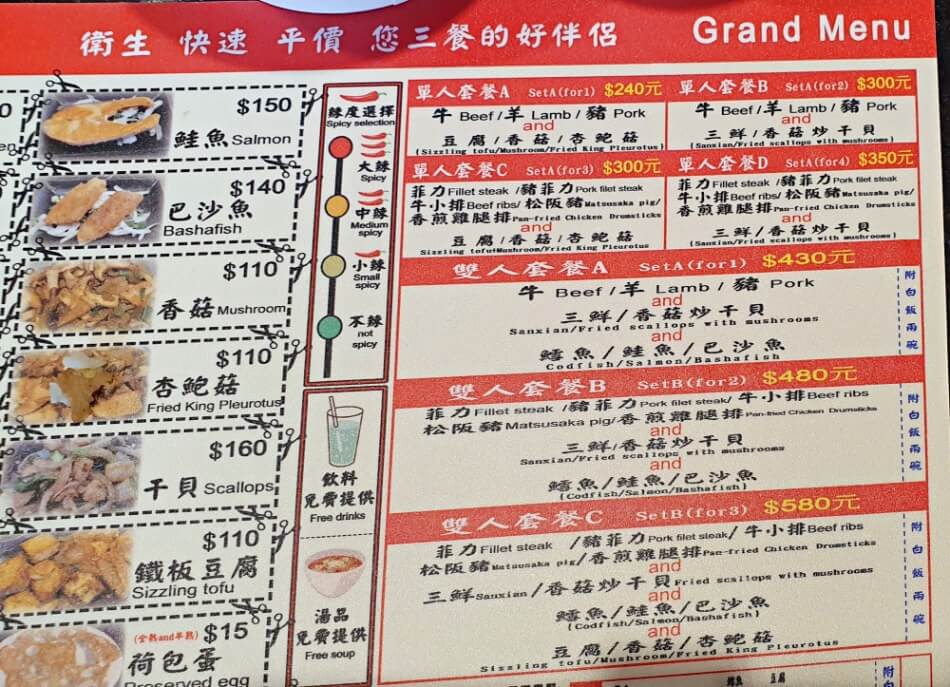 衛生 快速 平價 您三餐的好伴侶
Grand Menu
$150
鮭魚 Salmon
$140
巴沙魚
Bashafish
$110
香菇 Mushroom
$110
杏鮑菇
Fried King Pleurotus
$160
干貝 Scallops
$110
鐵板豆腐
Sizzling tofu
(全熟and半熟) $15
荷包蛋
Preserved egg
辣度選擇
Spicy selection
大辣
Spicy
中辣
Medium
spicy
小辣
Small
spicy
不辣
not
spicy
飲料
免費提供
Free drinks
湯品
免費提供
Free soup
單人套餐A SetA(for1) $240元
牛 Beef/羊 Lamb/豬 Pork
and
豆腐/香菇/杏鮑菇
(Sizzling tofu/Mushroom/Fried King Pleurotus)
單人套餐B SetA(for2) $300元
牛 Beef/羊 Lamb/豬 Pork
and
三鮮/香菇炒干貝
(Sanxian/Fried scallops with mushrooms)
單人套餐C SetA(for3) $300元
菲力Fillet steak /豬菲力Pork filet steak
牛小排Beef ribs/ 松阪豬Matsusaka pig/
香煎雞腿排Pan-fried Chicken Drumsticks
and
豆腐/香菇/杏鮑菇
Sizzling tofu+Mushroom/Fried King Pleurotus
單人套餐D SetA(for4) $350元
菲力Fillet steak /豬菲力Pork filet steak
牛小排Beef ribs/ 松阪豬Matsusaka pig/
香煎雞腿排Pan-fried Chicken Drumsticks
and
三鮮/香菇炒干貝
(Sanxian/Fried scallops with mushrooms)
雙人套餐A SetA(for1) $430元
牛 Beef/羊 Lamb/豬 Pork
and
三鮮/香菇炒干貝
Sanxian/Fried scallops with mushrooms
and
鱈魚/鮭魚/巴沙魚
Codfish/Salmon/Bashafish
附白飯兩碗
雙人套餐B SetB(for2) $480元
菲力Fillet steak /豬菲力Pork filet steak/ 牛小排Beef ribs
松阪豬Matsusaka pig/香煎雞腿排Pan-fried Chicken Drumsticks
and
三鮮/香菇炒干貝
Sanxian/Fried scallops with mushrooms
and
鱈魚/鮭魚/巴沙魚
(Codfish/Salmon/Bashafish)
附白飯兩碗
雙人套餐C SetB(for3) $580元
菲力Fillet steak /豬菲力Pork filet steak/ 牛小排Beef ribs
松阪豬Matsusaka pig/香煎雞腿排Pan-fried Chicken Drumsticks
and
三鮮Sanxian/香菇炒干貝Fried scallops with mushrooms
and
鱈魚/鮭魚/巴沙魚
(Codfish/Salmon/Bashafish)
and
豆腐/香菇/杏鮑菇
Sizzling tofu/Mushroom/Fried King Pleurotus
附白飯兩碗